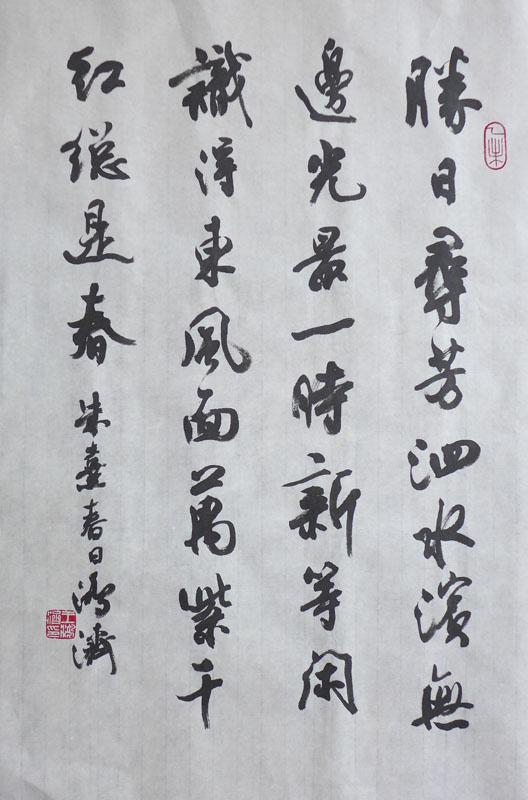 勝日尋芳泗水濱無
邊光景一時新等閑
識得東風面萬紫千
紅總是春 朱熹春日鴻濤